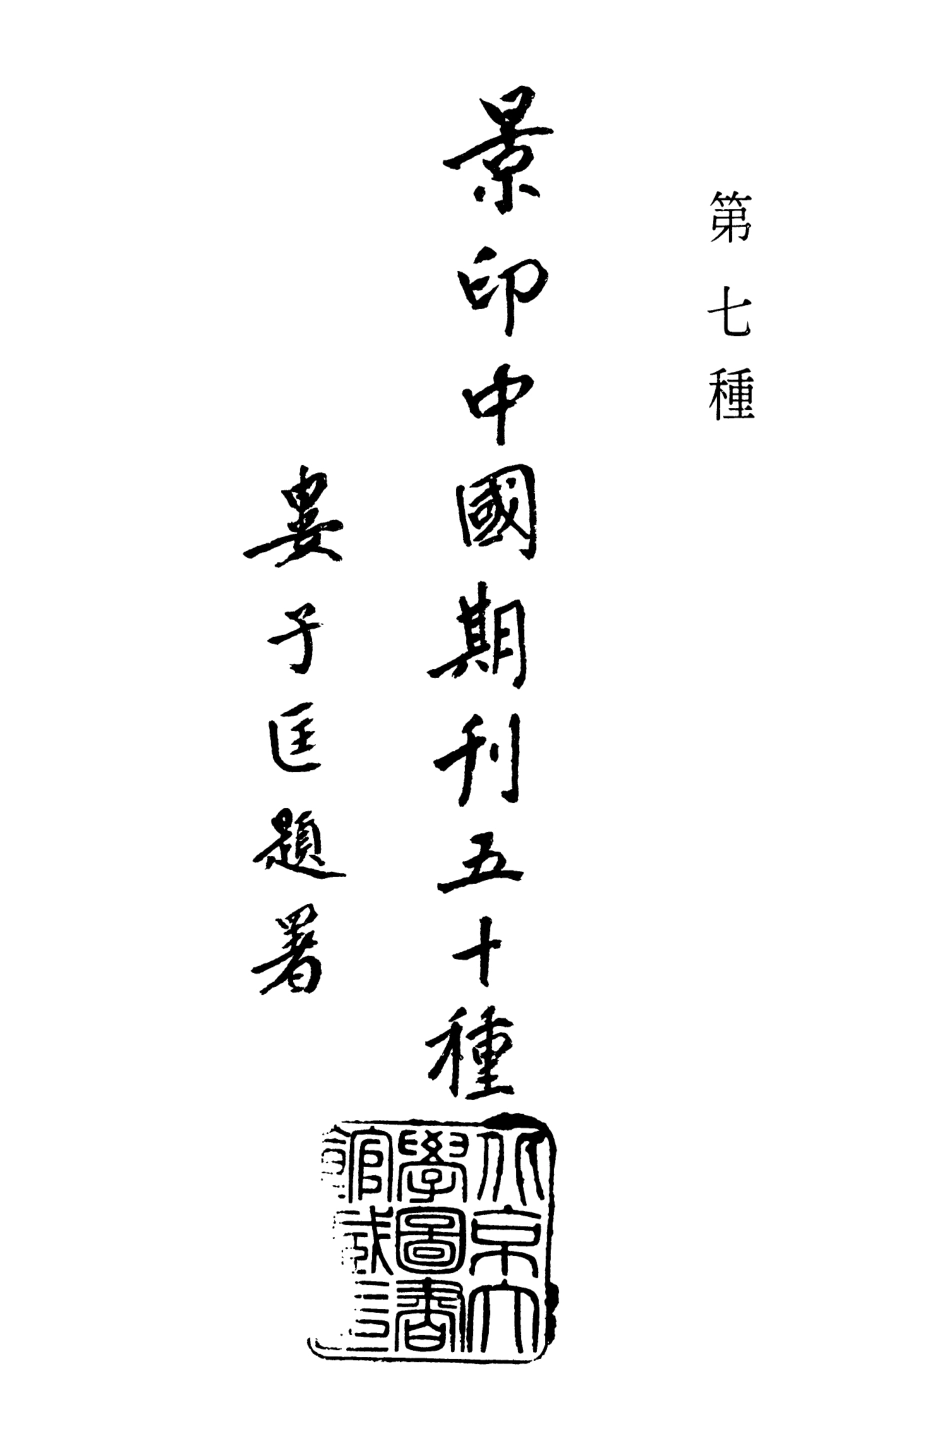 第七種
景印中國期刊五十種
婁子匡題署
北京大
學圖書
館藏